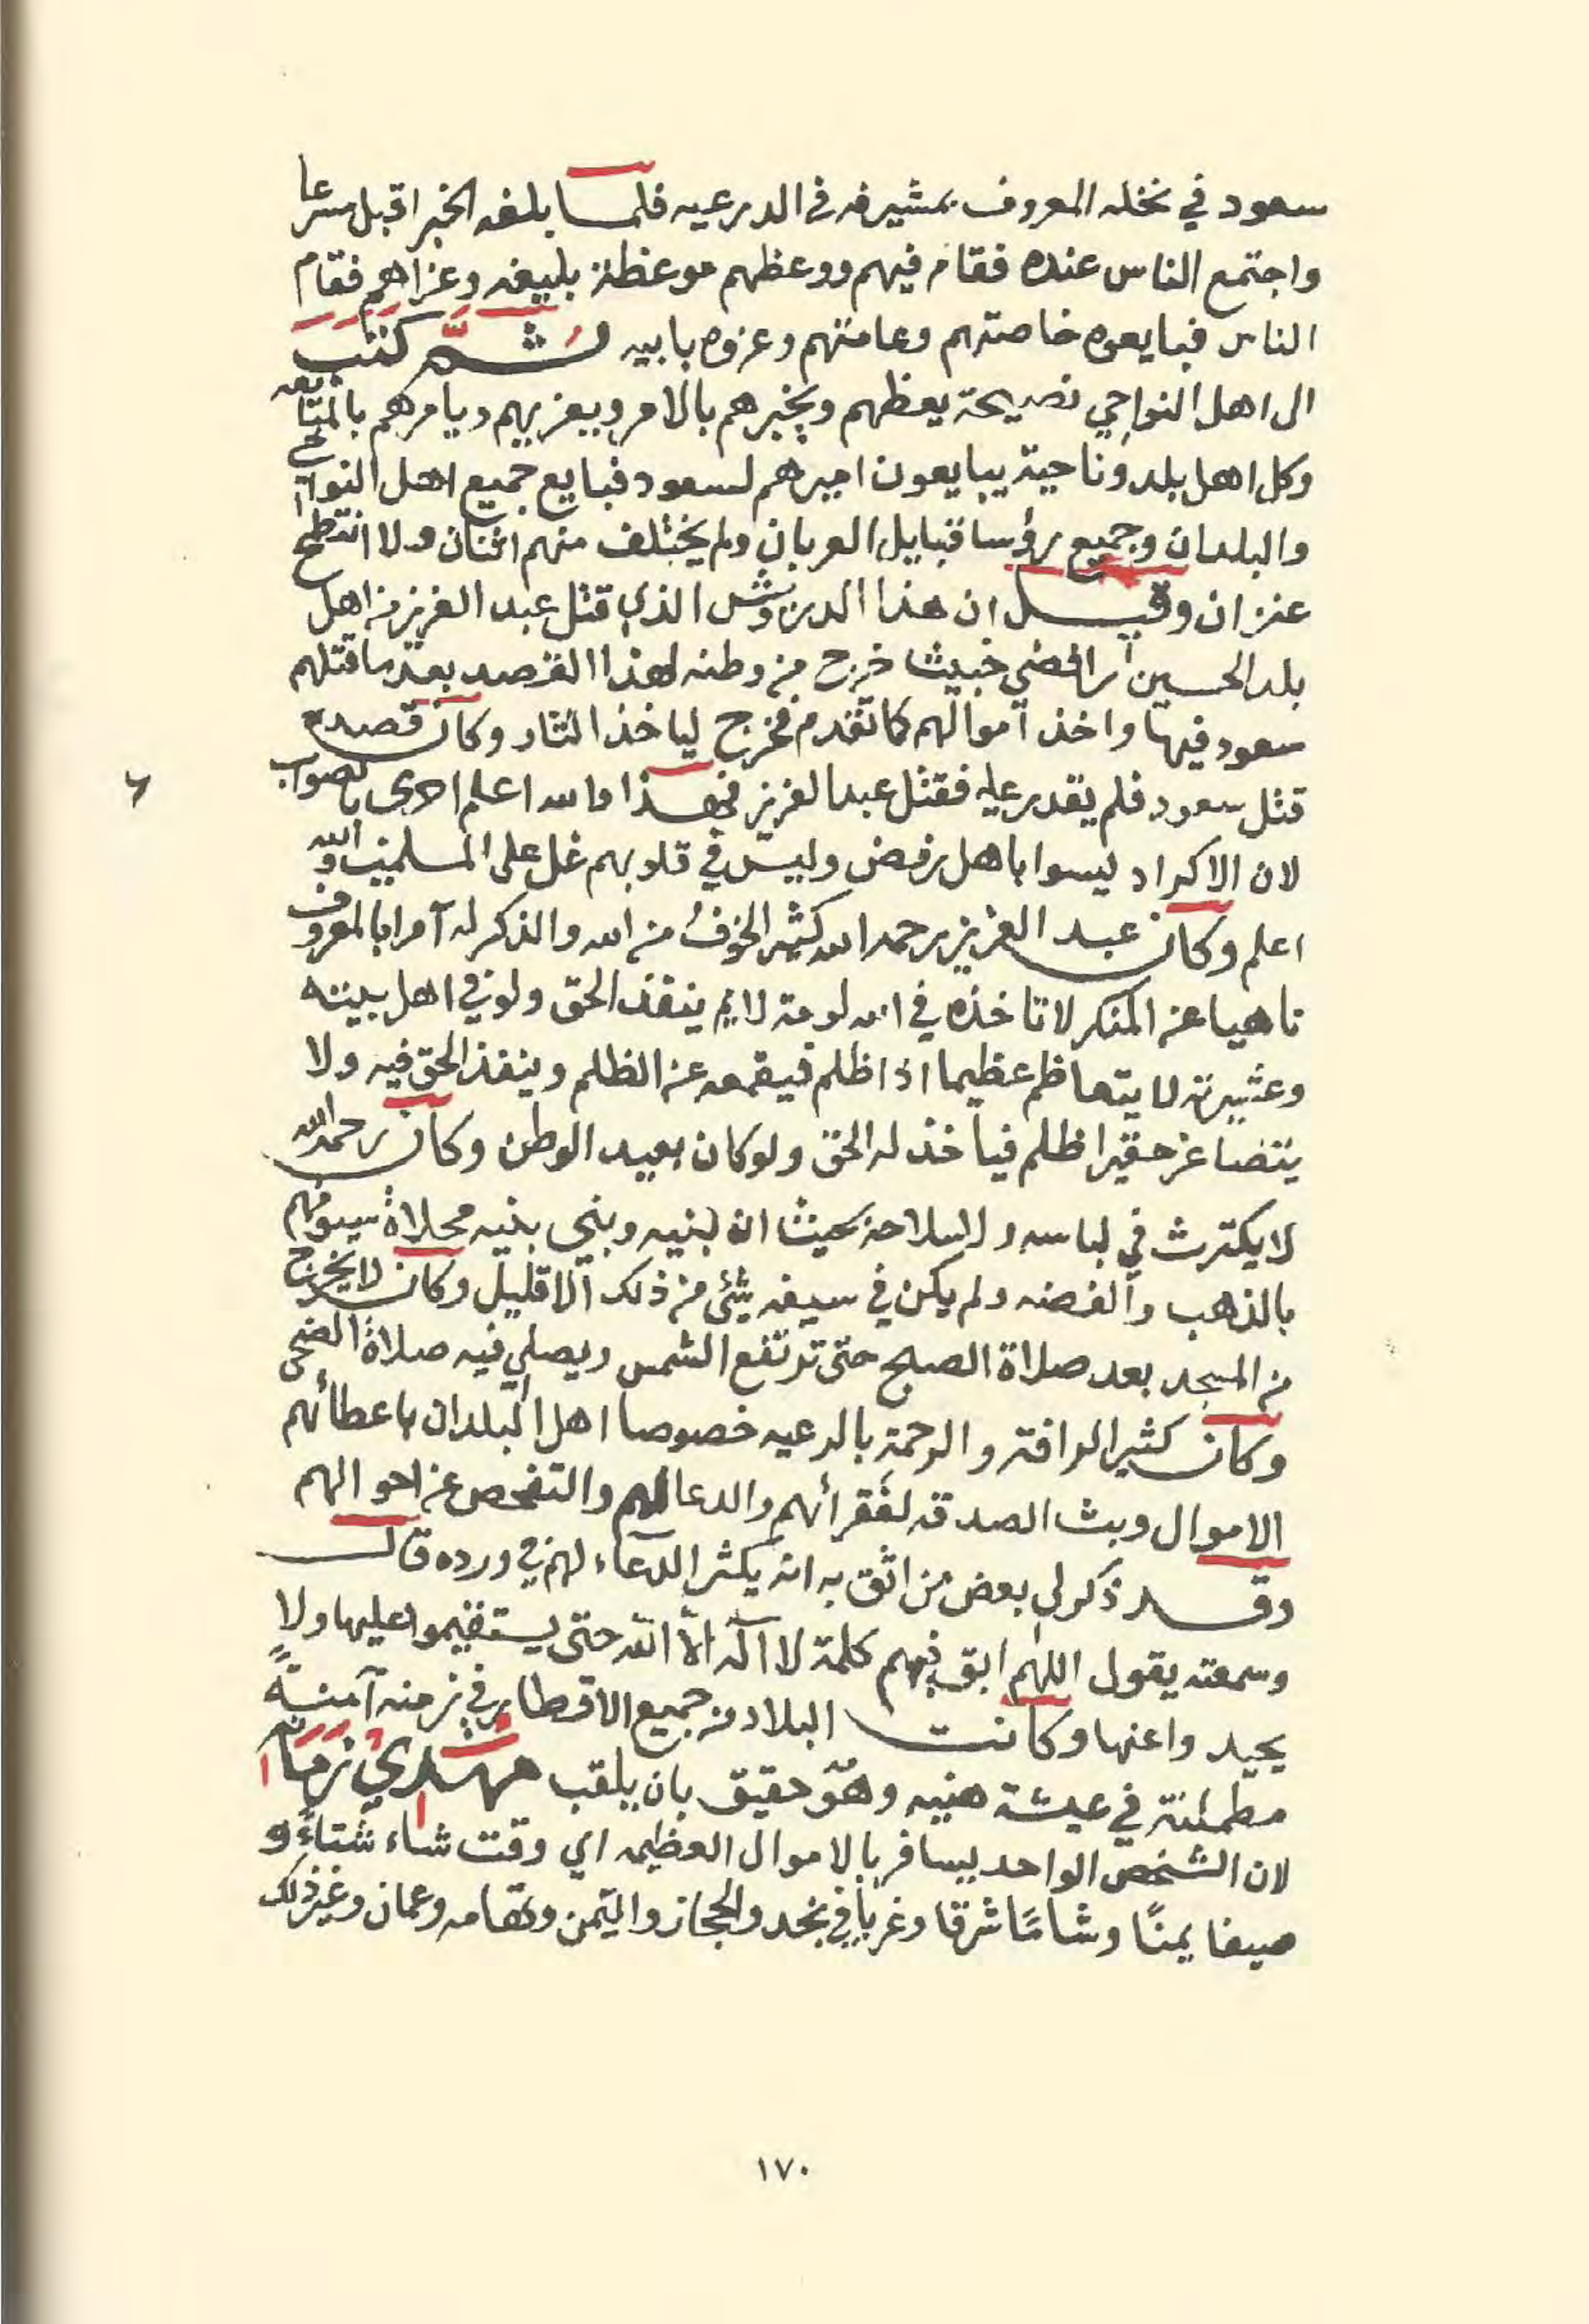 سعود في نخله المعروف بمشيرفه في الدرعيه فلما بلغه الخبر اقبل مسرعا
واجتمع الناس عنده فقام فيهم ووعظهم موعظة بليغه وعزاهم فقام
الناس فبايعوه خاصتهم وعامتهم وعزوه بابيه ثم كتب
الى اهل النواحي نصيحة يعظهم ويخبرهم بالامر ويعزيهم ويامرهم بالمتابعه
وكل اهل بلد وناحية يبايعون اميرهم لسعود فبايع جميع اهل النواحي
والبلدان وجميع رؤسا قبايل العربان ولم يختلف منهم اثنان ولا انتطح
عنزان وقيل ان هذا الدرويش الذي قتل عبد العزيز من اهل
بلد الحسين رافضي خبيث خرج من وطنه لهذا القصد بعد ما قتلهم
سعود فيها واخذ اموالهم كما تقدم فخرج لياخذ الثار وكان قصده
قتل سعود فلم يقدر عليه فقتل عبد العزيز فهذا والله اعلم احرى بالصواب
لان الاكراد ليسوا باهل رفض وليس في قلوبهم غل على المسلمين والله
اعلم وكان عبد العزيز رحمه الله كثير الخوف من الله والذكر له آمرا بالمعروف
ناهيا عن المنكر لا تاخذه في الله لومة لايم ينفذ الحق ولو في اهل بيته
وعشيرته لا يتعاظم عظيما اذا ظلم فيقمعه عن الظلم وينفذ الحق فيه ولا
يتصاغر حقيرا ظلم فياخذ له الحق ولو كان بعيد الوطن وكان رحمه الله
لا يكترث في لباسه ولا سلاحه بحيث ان بنيه وبني بنيه محلاة سيوفهم
بالذهب والفضه ولم يكن في سيفه شئ من ذلك الا قليل وكان لا يخرج
من المسجد بعد صلاة الصبح حتى ترتفع الشمس ويصلي فيه صلاة الضحى
وكان كثير الرافة والرحمة بالرعيه خصوصا اهل البلدان باعطائهم
الاموال وبث الصدقه لفقرائهم والدعا لهم والتفحص عن احوالهم
وقد ذكر لي بعض من اثق به انه يكثر الدعاء لهم في ورده قال
وسمعته يقول اللهم ابق فيهم كلمة لا اله الا الله حتى يستقيموا عليها ولا
يحيدوا عنها وكانت البلاد من جميع الاقطار في زمنه آمنة
مطمئنة في عيشة هنيه وهو حقيق بان يلقب مهدي زمانه
لان الشخص الواحد يسافر بالاموال العظيمه اي وقت شاء شتاءً و
صيفا يمنًا وشامًا شرقا وغربا في نجد والحجاز واليمن وتهامه وعمان وغير ذلك
١٧٠